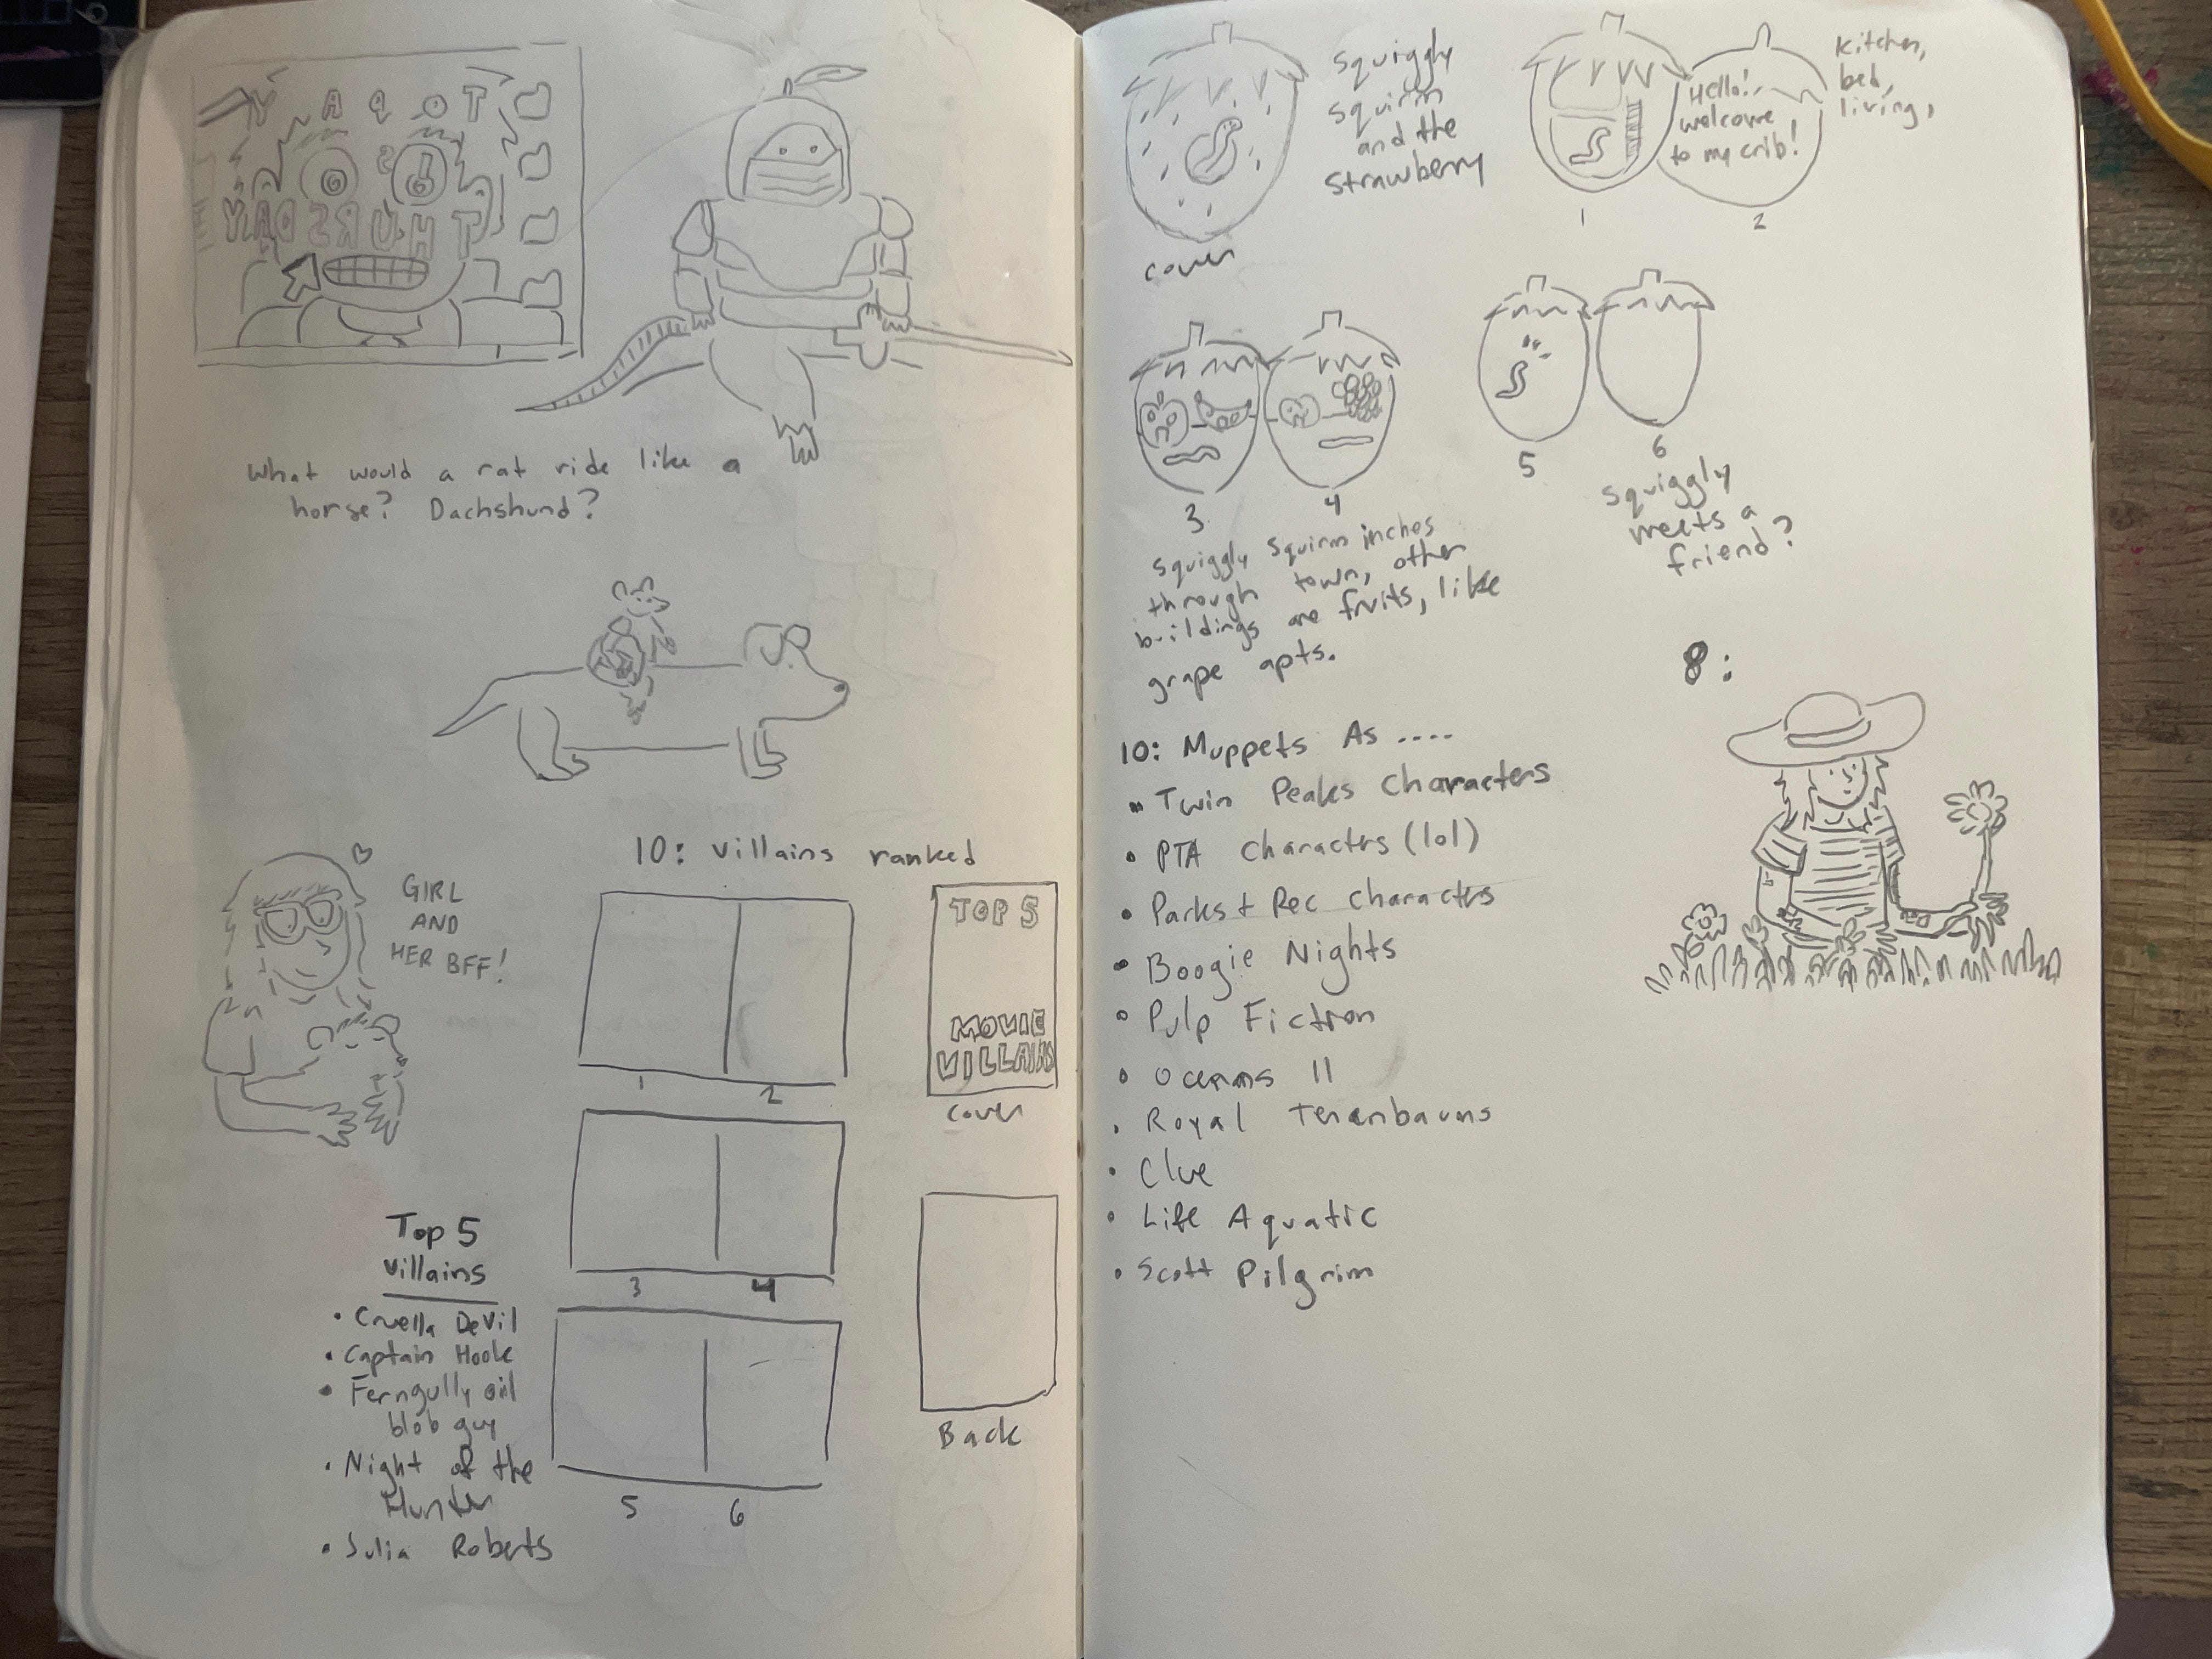 YAQOT
THURSDAY
What would a rat ride like a
horse? Dachshund?
GIRL
AND
HER BFF!
10: villains ranked
TOP 5
MOVIE
VILLAINS
cover
1
2
3
4
5
6
Back
Top 5
villains
• Cruella DeVil
• Captain Hook
• Ferngully oil
blob guy
• Night of the
Hunter
• Julia Roberts
Squiggly
Squirm
and the
Strawberry
cover
Hello!
welcome
to my crib!
Kitchen,
bed,
living,
1
2
3
4
5
6
Squiggly Squirm inches
through town, other
buildings are fruits, like
grape apts.
Squiggly
meets a
friend?
8:
10: Muppets As ....
• Twin Peaks Characters
• PTA Characters (lol)
• Parks + Rec Characters
• Boogie Nights
• Pulp Fiction
• Oceans 11
• Royal Tenenbaums
• Clue
• Life Aquatic
• Scott Pilgrim